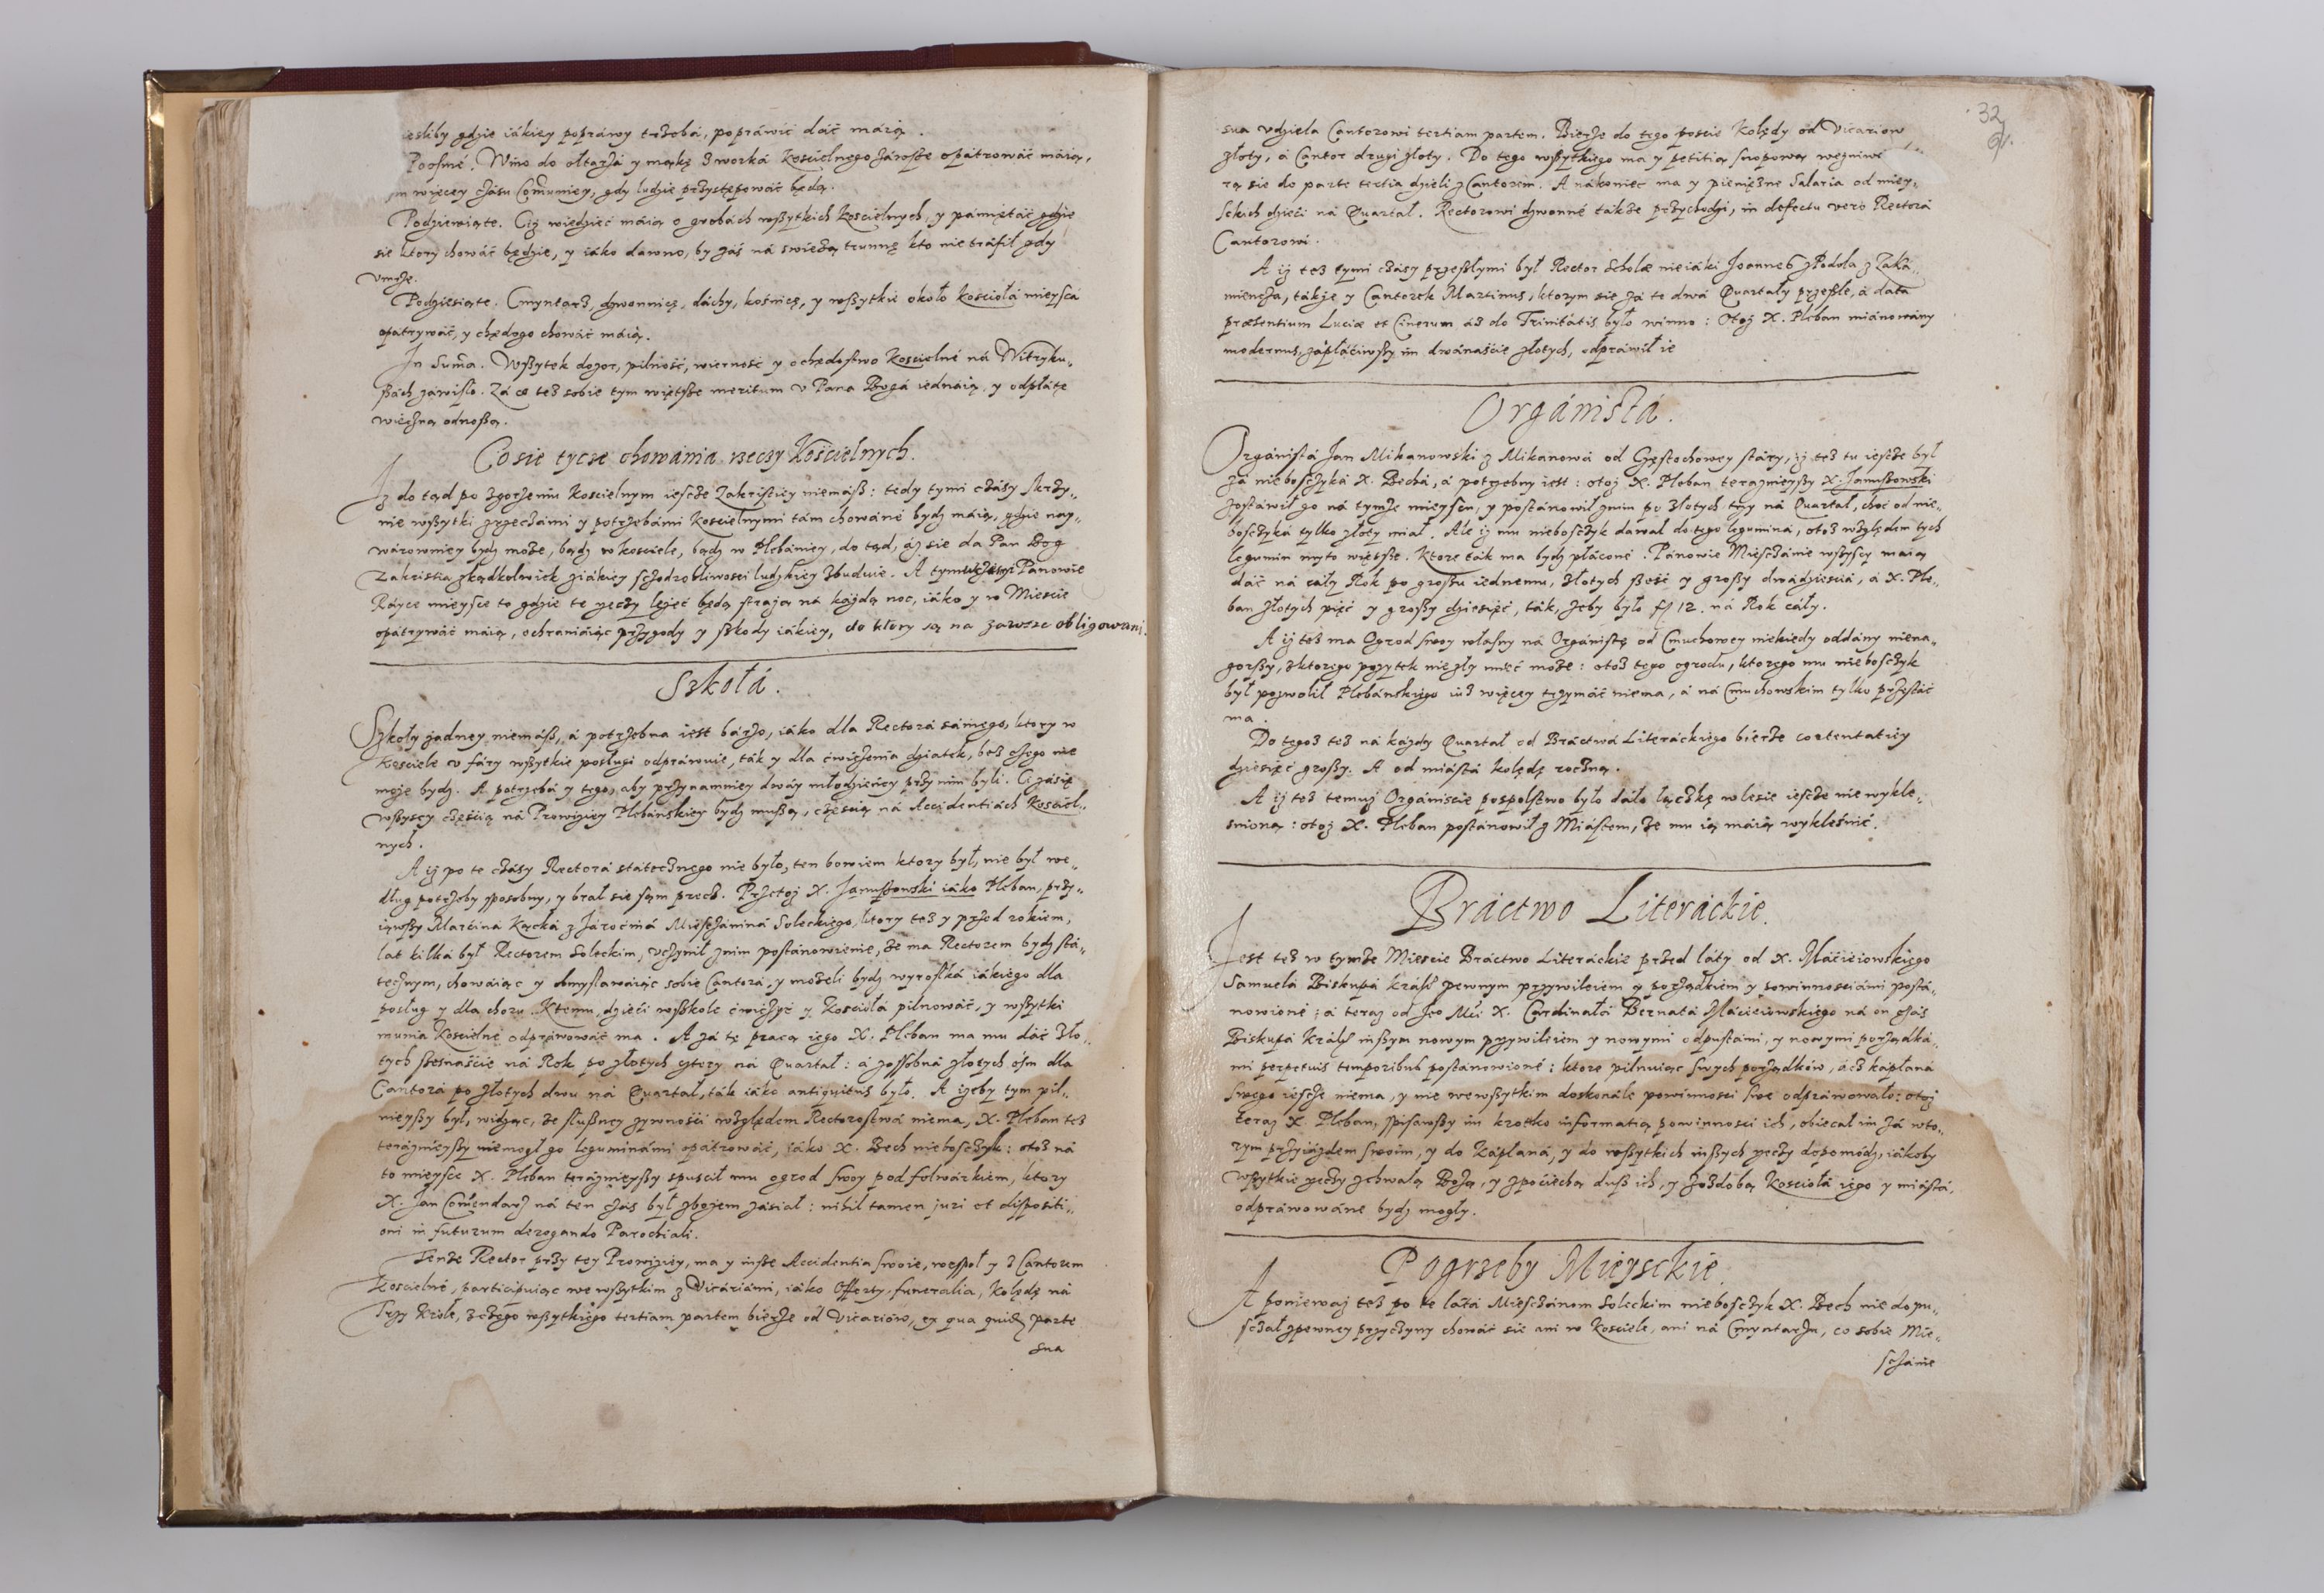 iesliby gdzie iákiey popráwy trzebá, popráwić dáć máią.
Poosmé. Wino do ołtarzá y mąkę z worká Kościelnego Jároste opátrowáć máią,
więcey czásu Comuniey, gdy ludzie przystępowáć będą.
Podziewiąte. Ciż wiedzieć máią o grobách wszytkich Kościelnych, y pámiętáć gdzie
sie ktory chowáć będzie, y iáko dawno, by zás ná swieżą trunnę kto nie tráfił gdy
vmrze.
Podziesiąte. Cmyntarz, dzwonnicę, dáchy, kośnicę, y wszytkie około Kościołá mieyscá
opátrzywáć, y chędogo chowáć máią.
In Suma. Wszytek dozor, pilność, wierność y ochędostwo Kościelné ná Witryku-
szách záwisło. Zá co też sobie tym więtsze meritum v Pana Bogá iednáią, y odpłátę
wieczną odnoszą.
Co sie tycze chowánia rzeczy Kościelnych.
Iż do tąd po zgorzeniu Kościelnym ieszcze Zakristiey niemász: tedy tymi czásy skrzy-
nie wszytki z rzeczámi y potrzebámi Kościelnymi tám chowáné bydź máią, gdzie nay-
wárowniey bydź może, bądź w kościele, bądź w Plebániey, do tąd, áż sie da Pan Bog
Zakristia zkądkolwiek z iákiey szczodrobliwości ludzkiey zbuduie. A tym Pánowie
Ráyce mieysce to gdzie te rzeczy leżeć będą strażą ná każdą noc, iáko y w Mieście
opátrywáć máią, ochraniáiąc przygody y szkody iákiey, do ktory są na zawsze obligowani.
Szkołá.
Szkoły żadney niemász, á potrzebna iest bárzo, iáko dla Rectorá sámego, ktory w
Kościele v fáry wszytkie posługi odpráwuie, ták y dla ćwiczenia dziatek, bez czego nie
może bydź. A potrzebá y tego, áby przynamniey dwáy młodzieńcy przy nim byli. Ci zásię
wszyscy częścią ná Prowiziey Plebánskiey bydź muszą, częścią ná Accidentiách Kościel-
nych.
A iż po te czásy Rectorá státecznego nie było, ten bowiem ktory był, nie był we-
dług potrzeby sposobny, y brał sie sam precz. Przetoż X. Januszowski iáko Pleban, przy-
iąwszy Marciná Kęcká z Járocina Mieszczániná Soleckiego, ktory też y przed rokiem,
lat kilká był Rectorem Soleckim, vczynił z nim postánowienie, że ma Rectorem bydź stá-
tecznym, chowáiąc y obmyslawáiąc sobie Cantorá, y możeli bydź wyrostká iákiego dla
posług y dla choru. Ktemu, dzieci w szkole ćwiczyć y Kościołá pilnowáć, y wszytki
munia Kościelné odpráwowáć ma. A zá tę pracą iego X. Pleban ma mu dáć zło-
tych szesnaście ná Rok po złotych cztery ná Quartał: á z osobná złotych ośm dla
Cantorá po złotych dwu ná Quartał, ták iáko antiquitus było. A iżeby tym pil-
nieyszy był, widząc, że słuszney żywności względem Rectorostwá niema, X. Pleban też
teráznieyszy niemogł go leguminámi opátrowáć, iáko X. Bech nieboszczyk: otoż ná
to mieysce X. Pleban teráznieyszy spuscił mu ogrod swoy pod folwárkiem, ktory
X. Jan Comendarz ná ten czás był zbożem zásiał: nihil tamen juri et dispositi-
oni in futurum derogando Parochiali.
Tenże Rector przy tey Prowiziey, ma y insze Accidentia swoie, wespoł y z Cantorem
Kościelné, participuiąc we wszytkim z Vicáriámi, iáko Offerty, funeralia, Kolędę ná
Trzy Krole, z czego wszytkiego tertiam partem bierze od Vicariów, ex qua quidem parte
sua
32
sua vdziela Cantorowi tertiam partem. Bierze do tego poscie Kolędy od Vicariow
złoty, á Cantor drugi złoty. Do tego wszytkiego ma y petitią snopową
rą sie do parte tertia dzieli z Cantorem. A nákoniec ma y pieniężne Salaria od miey-
sckich dzieci ná Quartał. Rectorowi dzwonné tákże przychodzi, in defectu vero Rectorá
Cantorowi.
A iż też tymi czásy przeszłymi był Rector Scholæ nieiáki Joannes z Podola z Zaká-
mieńczá, tákże y Cantorek Martinus, ktorym sie zá te dwá Quartały przeszłe, á data
præsentium Luciæ et Cinerum áż do Trinitátis było winno: Otoż X. Pleban miánowány
modernus, zápłáciwszy im dwánascie złotych, odpráwił ie
Orgánistá.
Orgánistá Jan Mikanowski z Mikanowá od Częstochowey stáry, iż też tu ieszcze był
zá nieboszczyká X. Bechá, á potrzebny iest: otoż X. Pleban teraznieyszy X. Januszowski
zostáwił go ná tymże mieyscu, y postánowił z nim po złotych trzy ná Quartał, choć od nie-
boszczyká tylko złoty miał. Ale iż mu nieboszczyk dawał do tego legumina, otoż względem tych
legumin myto więtsze. Ktore ták ma bydź płáconé. Pánowie Mieszczánie wszyscy máią
dáć ná cáły Rok po groszu iednemu, złotych sześć y groszy dwádzieściá, á X. Ple-
ban złotych pięć y groszy dziesięć, ták, żeby było fl 12. ná Rok cáły.
A iż też ma Ogrod swoy własny ná Orgánistę od Cmuchowey niekiedy oddány niena-
gorszy, z ktorego pożytek niezły mieć może: otoż tego ogrodu, ktorego mu nieboszczyk
był pozwolił Plebánskiego iuż więcey trzymáć niema, á ná Cmuchowskim tylko przestáć
ma.
Do tegoż też ná káżdy Quartał od Bráctwá Literáckiego bierze contentatiey
dziesięć groszy. A od miástá kolędę roczną.
A iż też temuż Orgániście pospolstwo było dáło łączkę w lesie ieszcze nie wykle-
snioną: otoż X. Pleban postánowił z Miástem, że mu ią máią wykleśnić.
Bráctwo Literáckie.
Jest też w tymże Mieście Bráctwo Literáckie przed láty od X. Máciejowskiego
Samuelá Biskupá Kráḱ pewnym przywileiem y porządkiem y powinnościámi postá-
nowioné; á teraz od Jeo Mći X. Cardinałá Bernatá Máciejowskiego ná on czás
Biskupá Kráḱ inszym nowym przywileiem y nowymi odpustámi, y nowymi porządká-
mi perpetuis temporibus postanowioné: ktore pilnuiąc swych porządków, ácz kápłaná
swego ieszcze niema, y nie we wszytkim doskonále powinności swe odpráwowáło: otoż
teraz X. Pleban, spisawszy im krotko informatią powinności ich, obiecał im zá wto-
rym przyiázdem swoim, y do Kápłaná, y do wszytkich inszych rzeczy dopomódz, iákoby
wszytkie rzeczy z chwałą Bożą, y z pociechą dusz ich, y z ozdobą Kościołá iego y miástá,
odpráwowáne bydź mogły.
Pogrzeby Mieysckie.
A ponieważ też po te látá Mieszczánom Soleckim nieboszczyk X. Bech nie dopu-
szczał z pewney przyczyny chowáć sie ani w Kościele, ani ná Cmyntarzu, co sobie Mie-
szczánie